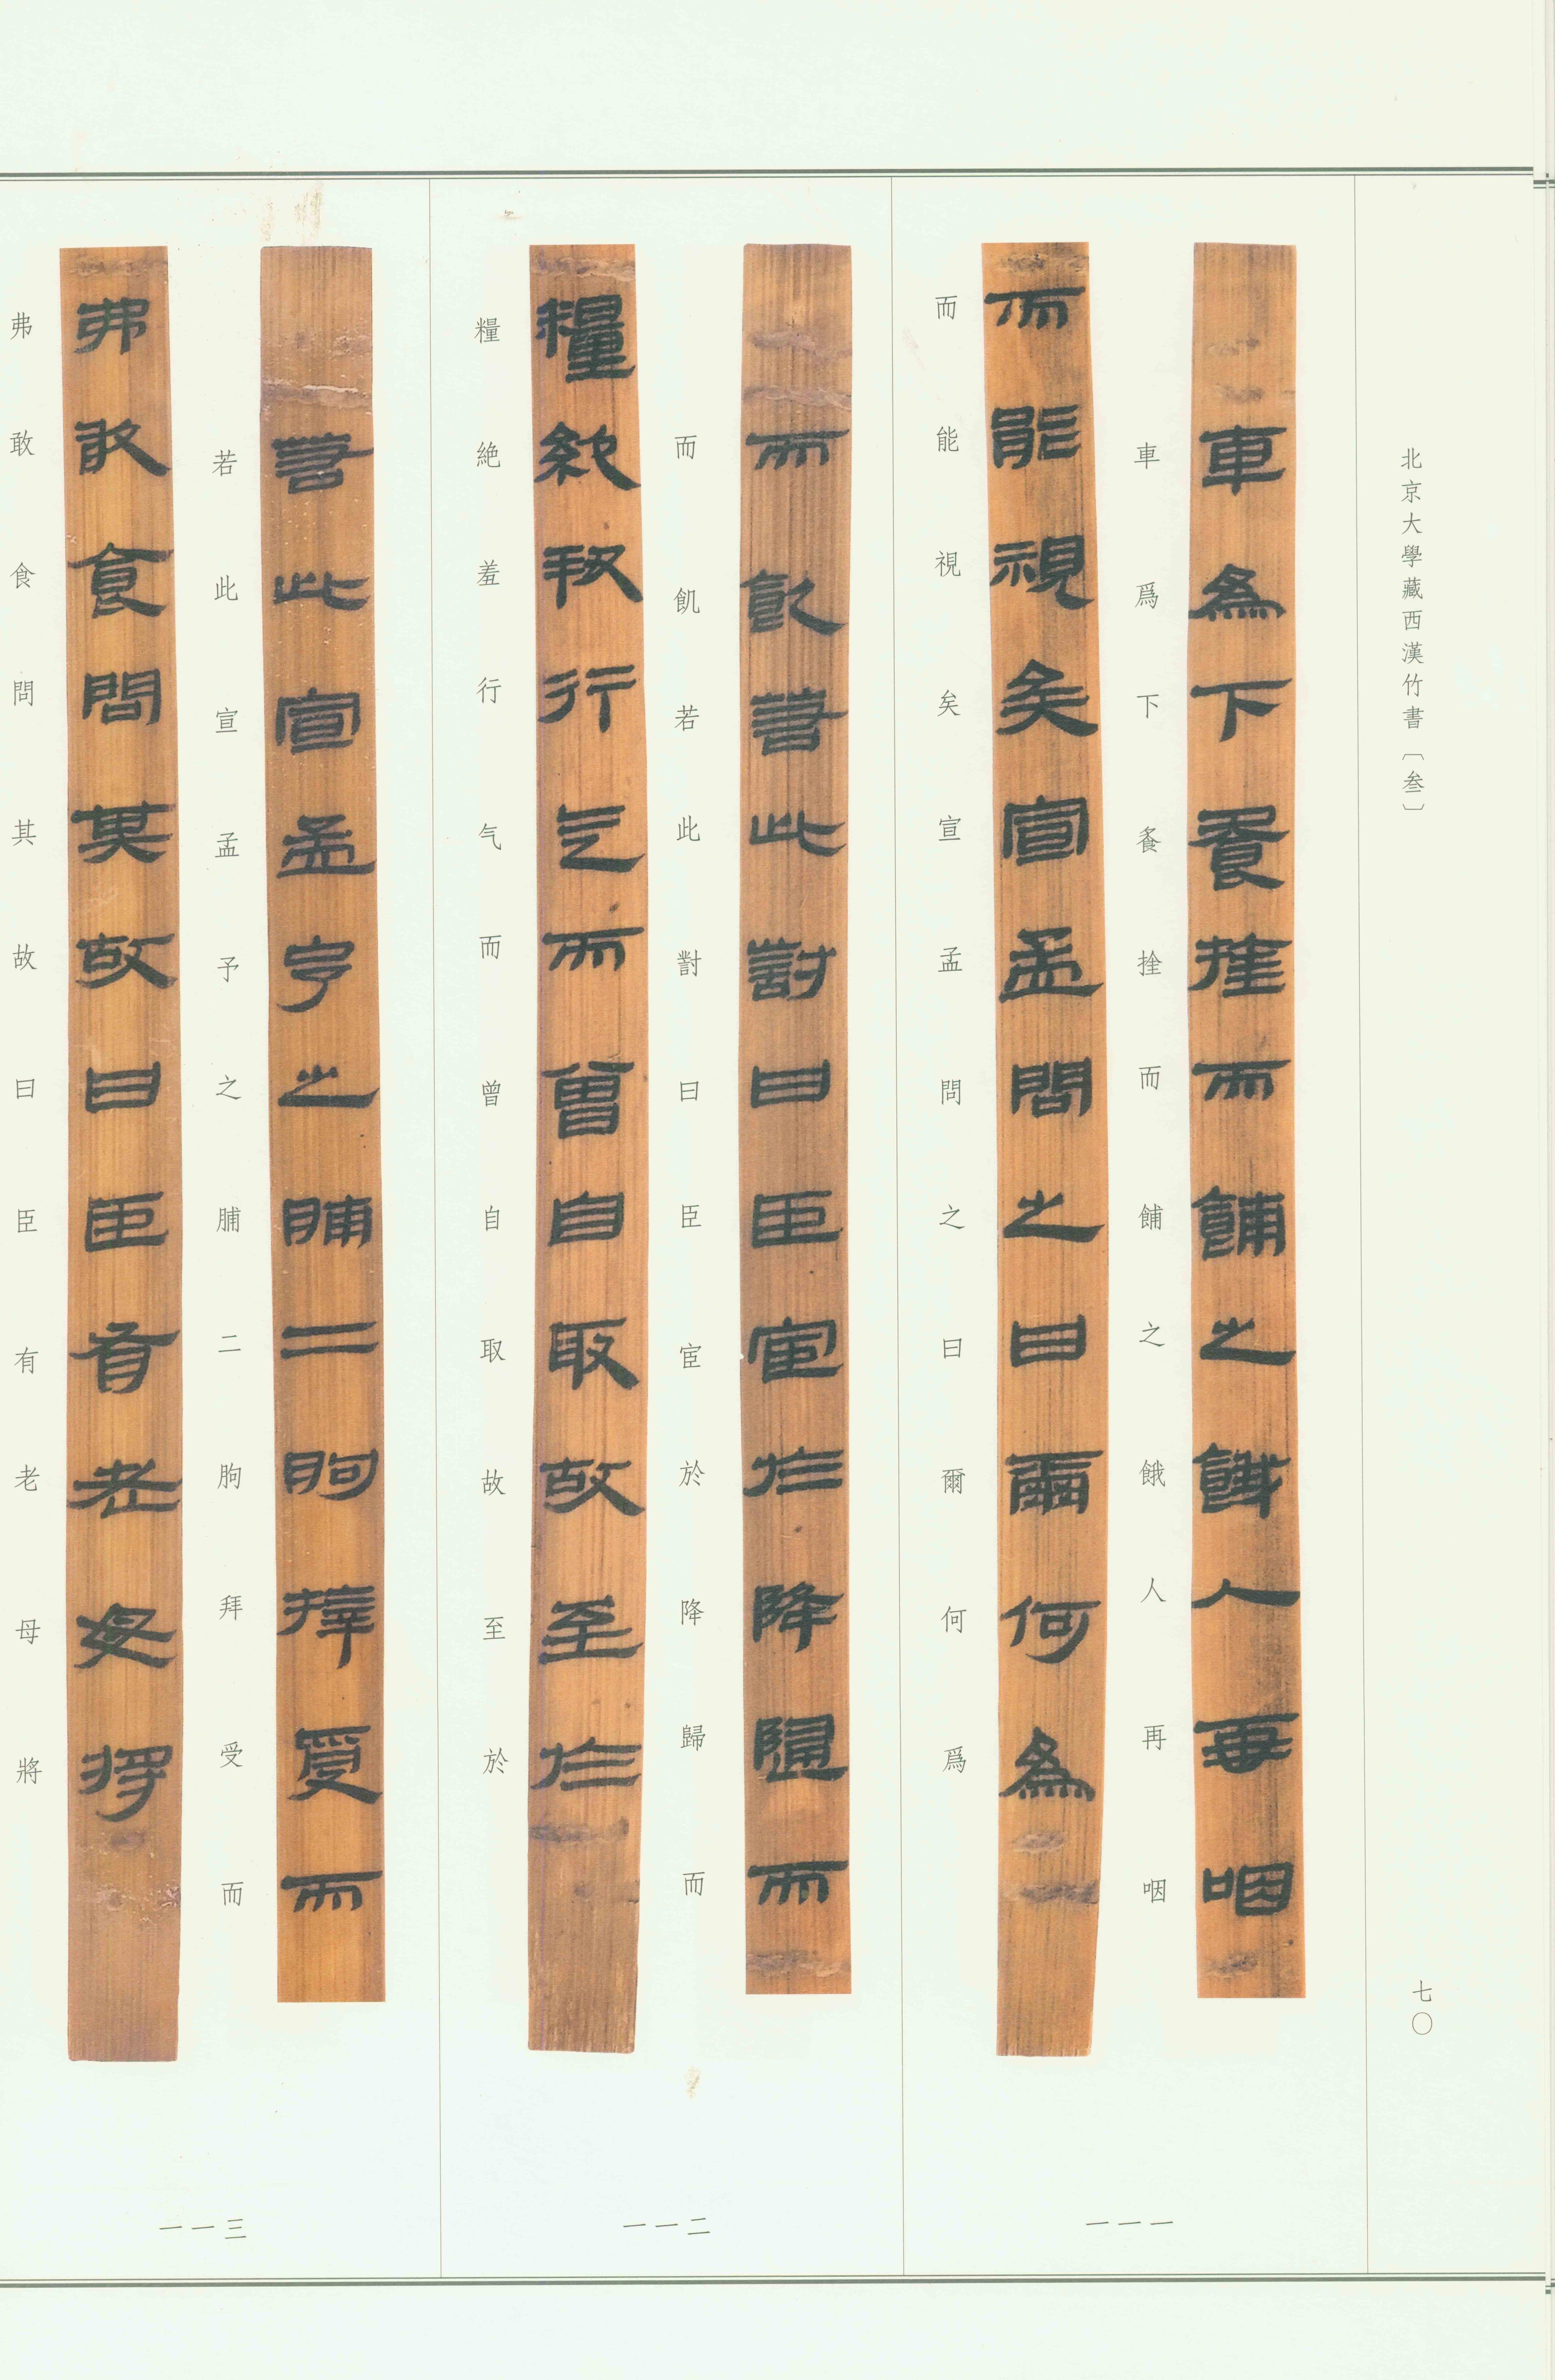 北京大學藏西漢竹書〔叁〕
七〇
車爲下飱拴而餔之餓人再咽
車爲下飱拴而餔之餓人再咽
而能視矣宣孟問之曰爾何爲
而能視矣宣孟問之曰爾何爲
一一一
而飢若此對曰臣宦於降歸而
而飢若此對曰臣宦於降歸而
糧絶羞行气而曾自取故至於
糧絶羞行气而曾自取故至於
一一二
若此宣孟予之脯二朐拜受而
若此宣孟予之脯二朐拜受而
弗敢食問其故曰臣有老母將
弗敢食問其故曰臣有老母將
一一三